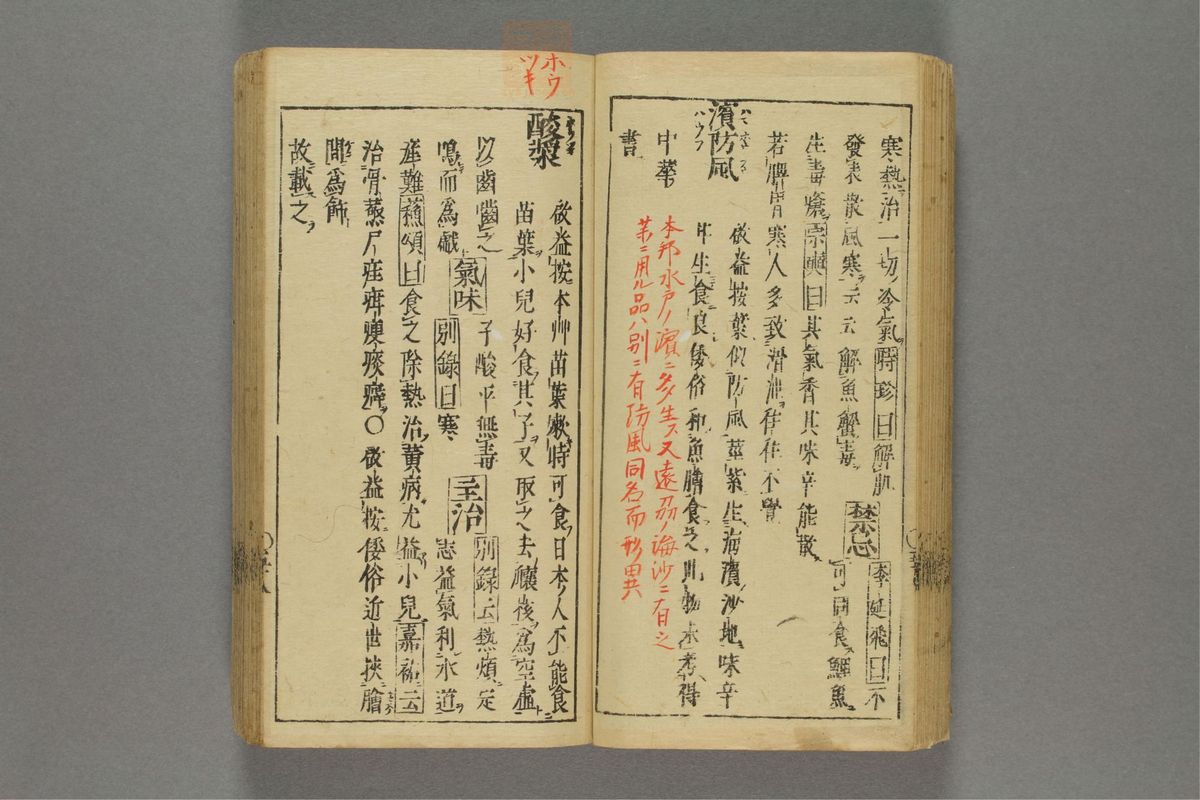 寒熱治一切ノ冷氣時珍曰解肌
發表散風寒云云解魚蟹毒禁忌李廷飛曰不
可同食鯉魚
生毒瘡宗奭曰其氣香其味辛能散
若脾胃寒人多致滑泄往往不覺
濱防風
ハマ
ハウフ
啟益按葉似防風莖紫生海濱沙地味辛
生食良倭俗和魚膾食之此物未考得
中華
書
本邦水戸ノ濱ニ多生ス又遠刕ノ海沙ニ有之
第二用ル品ハ別ニ有防風同名而形異
ホウ
ツキ
酸漿
啟益按本艸苗葉嫩時可食日本ノ人不能食
苗葉小兒好食其子又取之去穰後為空虛
以齒嚙之
鳴而為戲氣味子酸平無毒主治別錄云熱煩定
別錄曰寒志益氣利水道
産難蘓頌曰食之除熱治黄病尤益小兒嘉祐云
治骨蒸尸疰疳瘦痰癖〇啟益按倭俗近世挾膾
間為飾
故載之